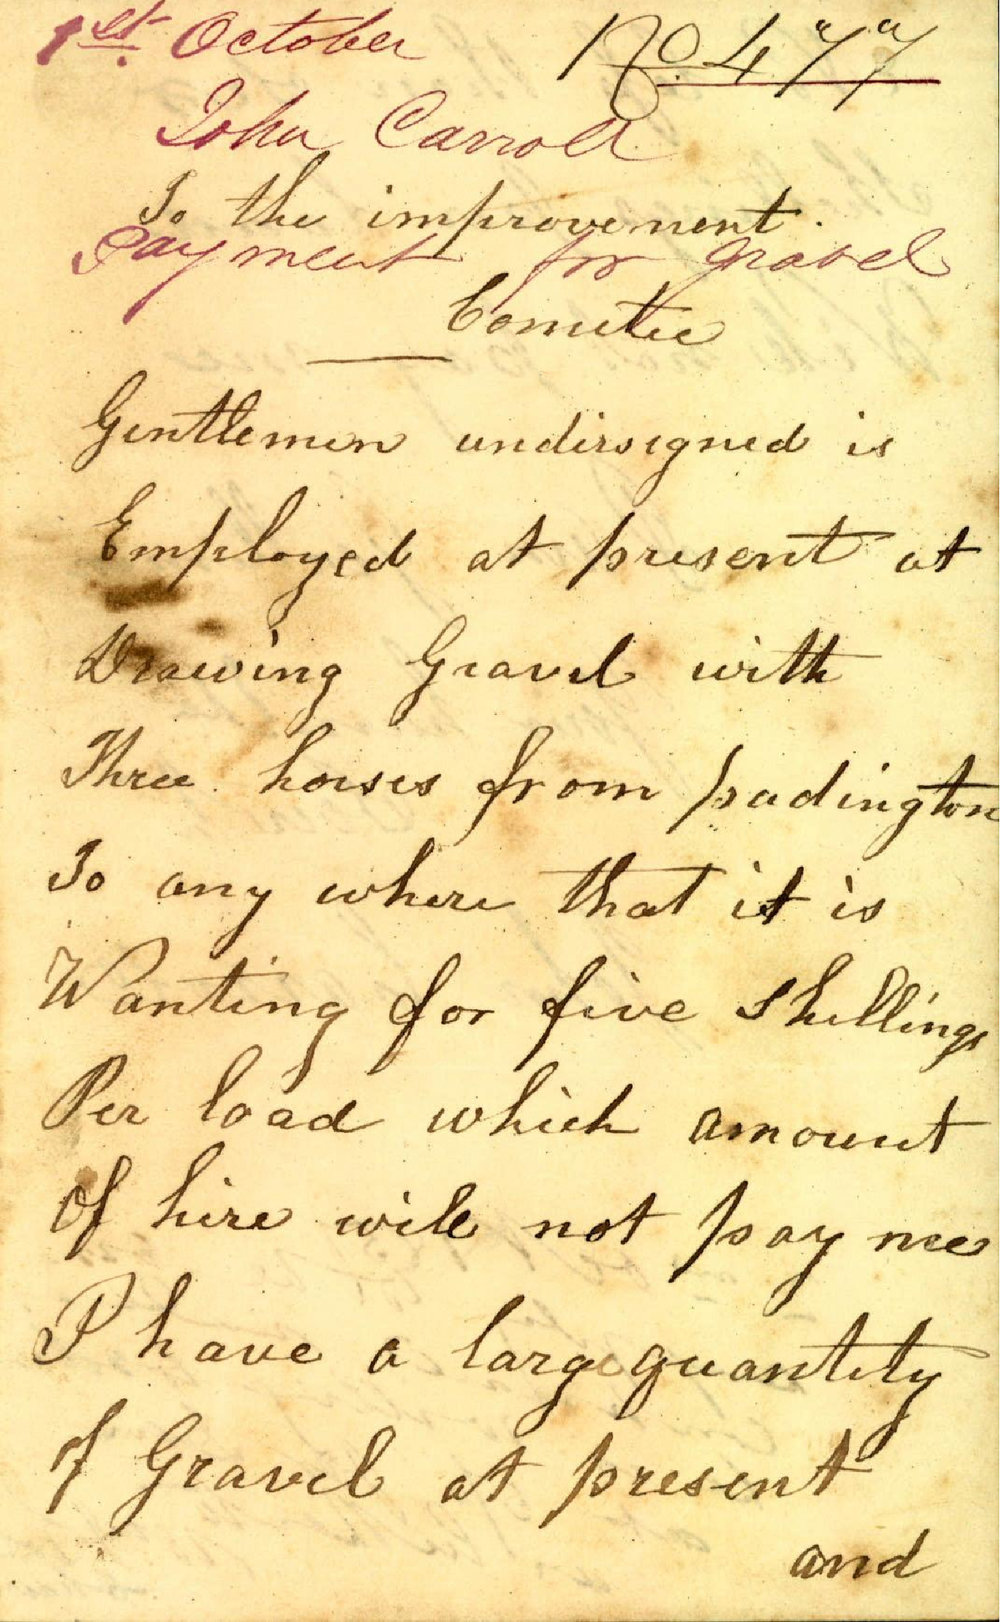 1st. October No. 477
John Carroll
To the improvement.
Payment for gravel
Comittee
Gentlemen undersigned is
Employed at present at
Drawing Gravel with
Three horses from padington
To any where that it is
Wanting for five Shillings
Per load which amount
Of hire will not pay me
I have a large quantity
of Gravel at present
and